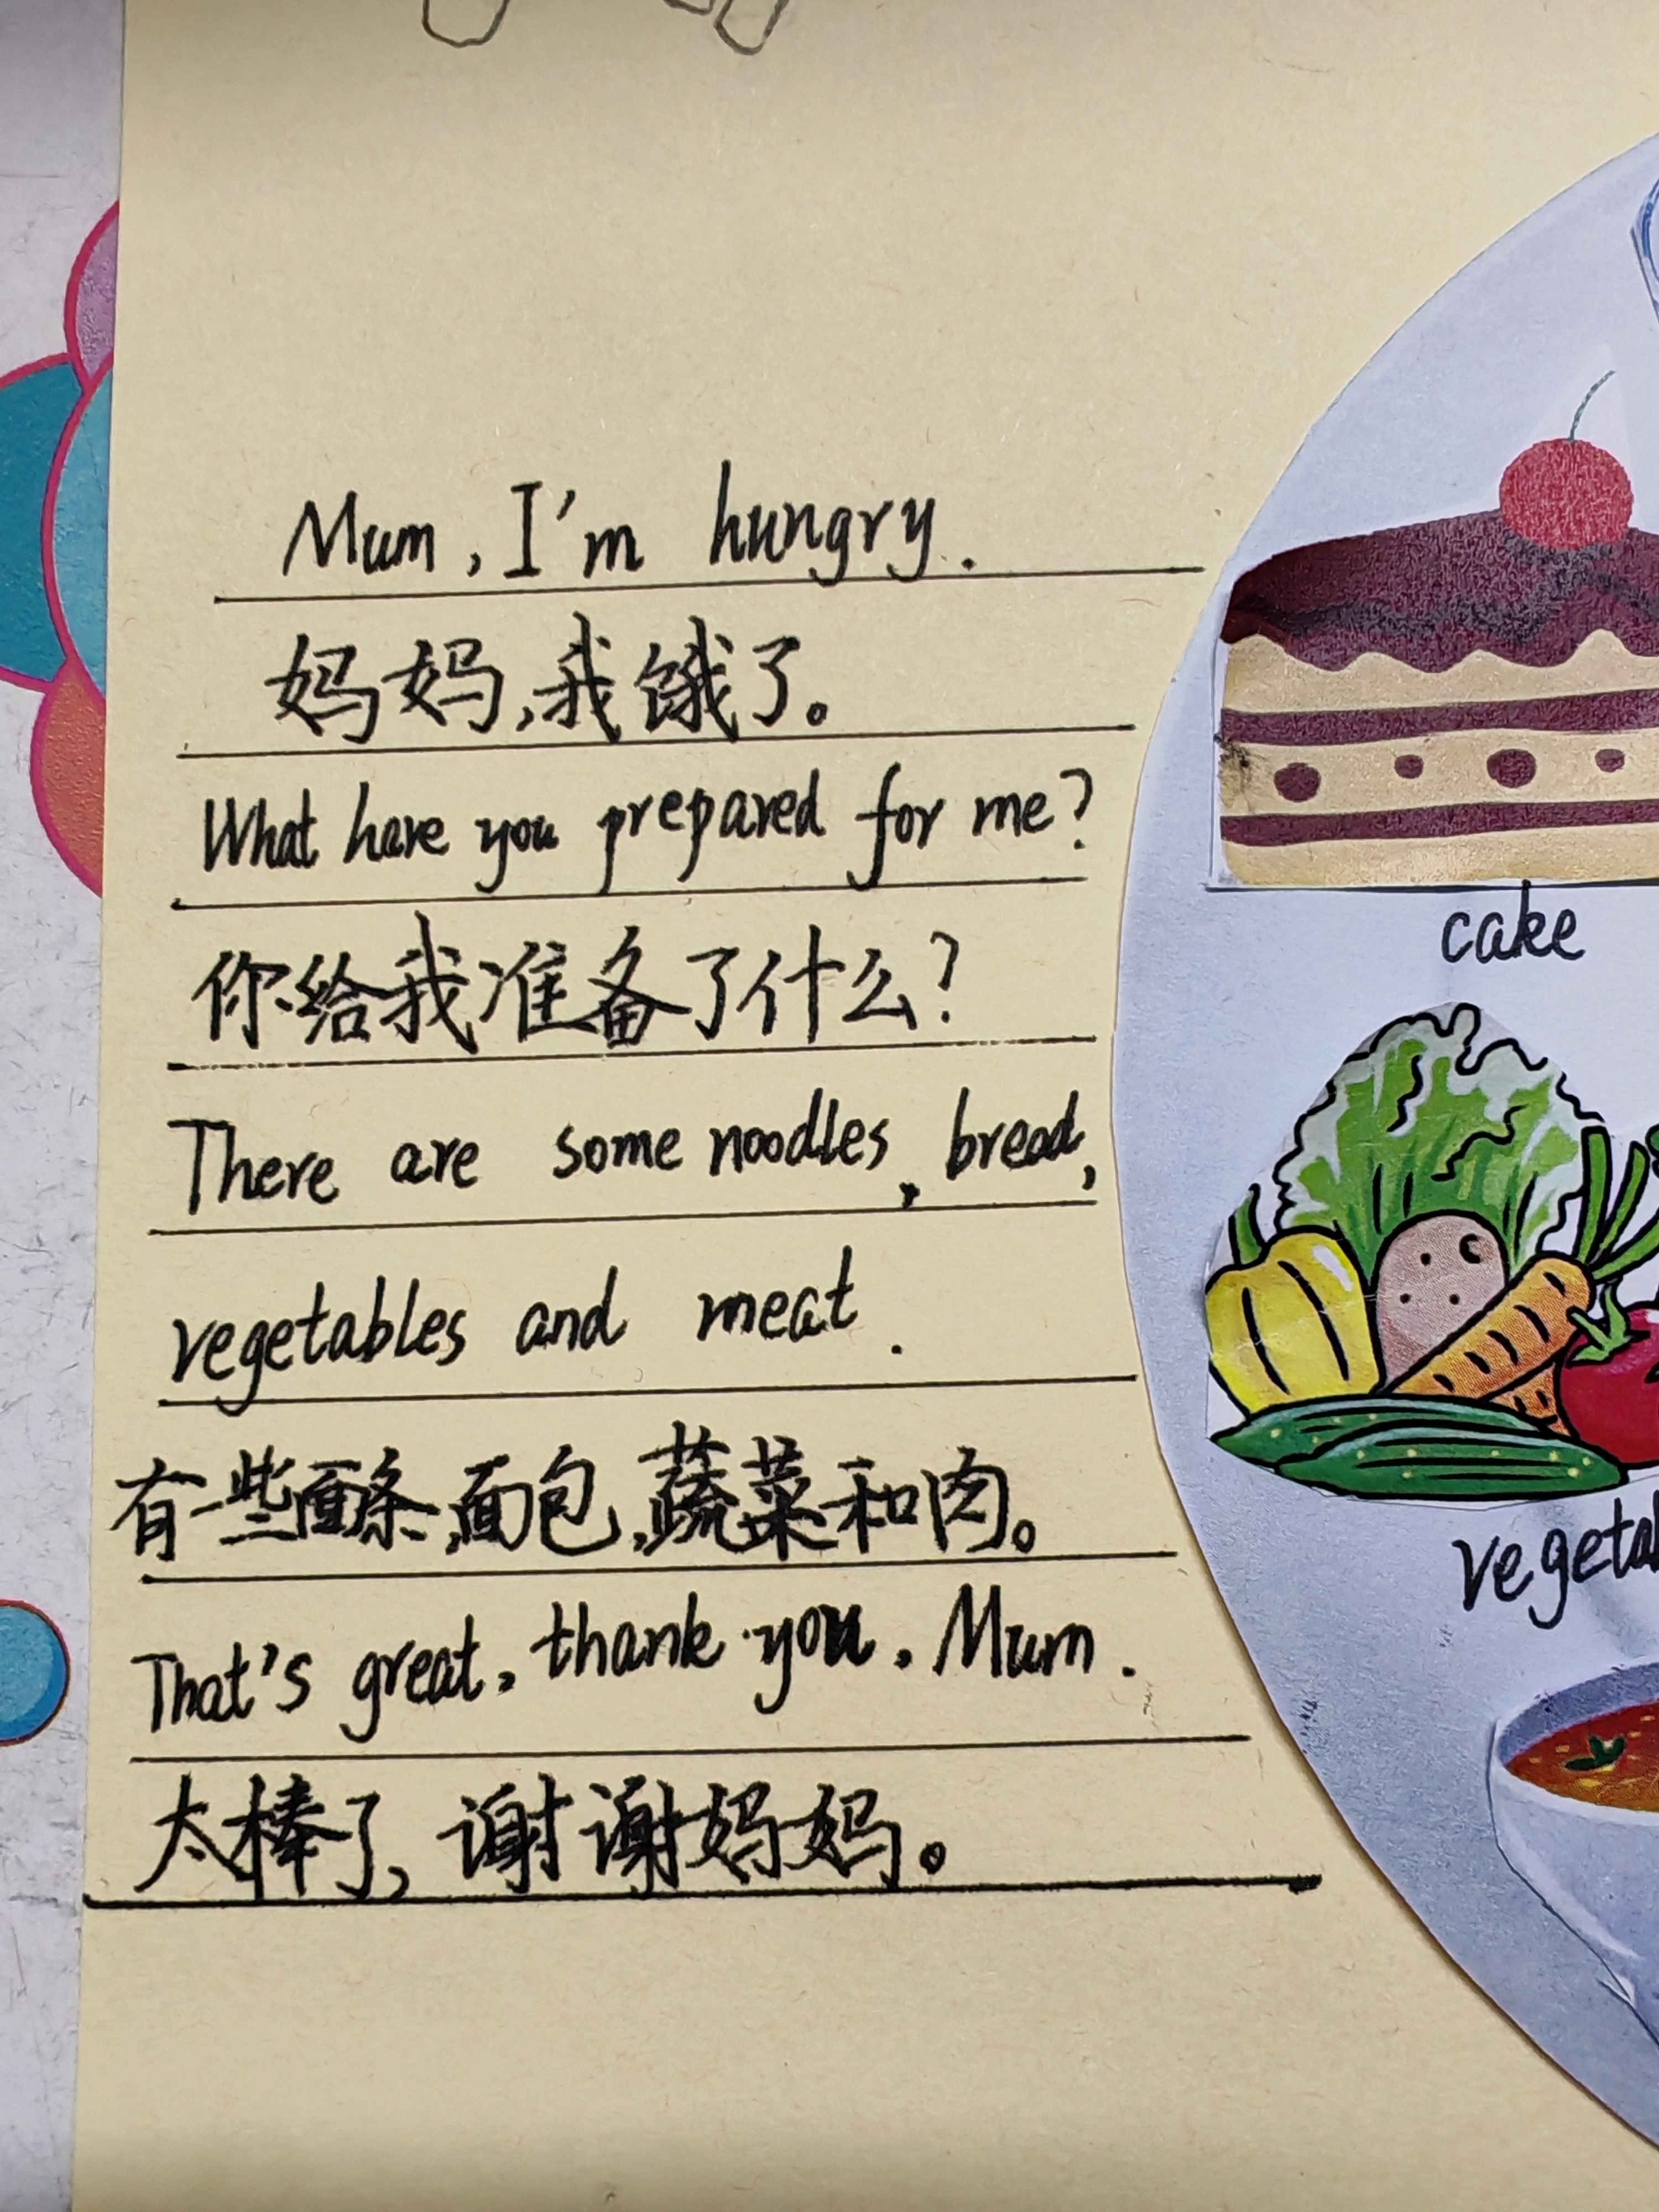 Mum, I'm hungry.
妈妈,我饿了。
What have you prepared for me?
你给我准备了什么?
There are some noodles, bread,
vegetables and meat.
有一些面条,面包,蔬菜和肉。
That's great, thank you, Mum.
太棒了,谢谢妈妈。
cake
vegetab